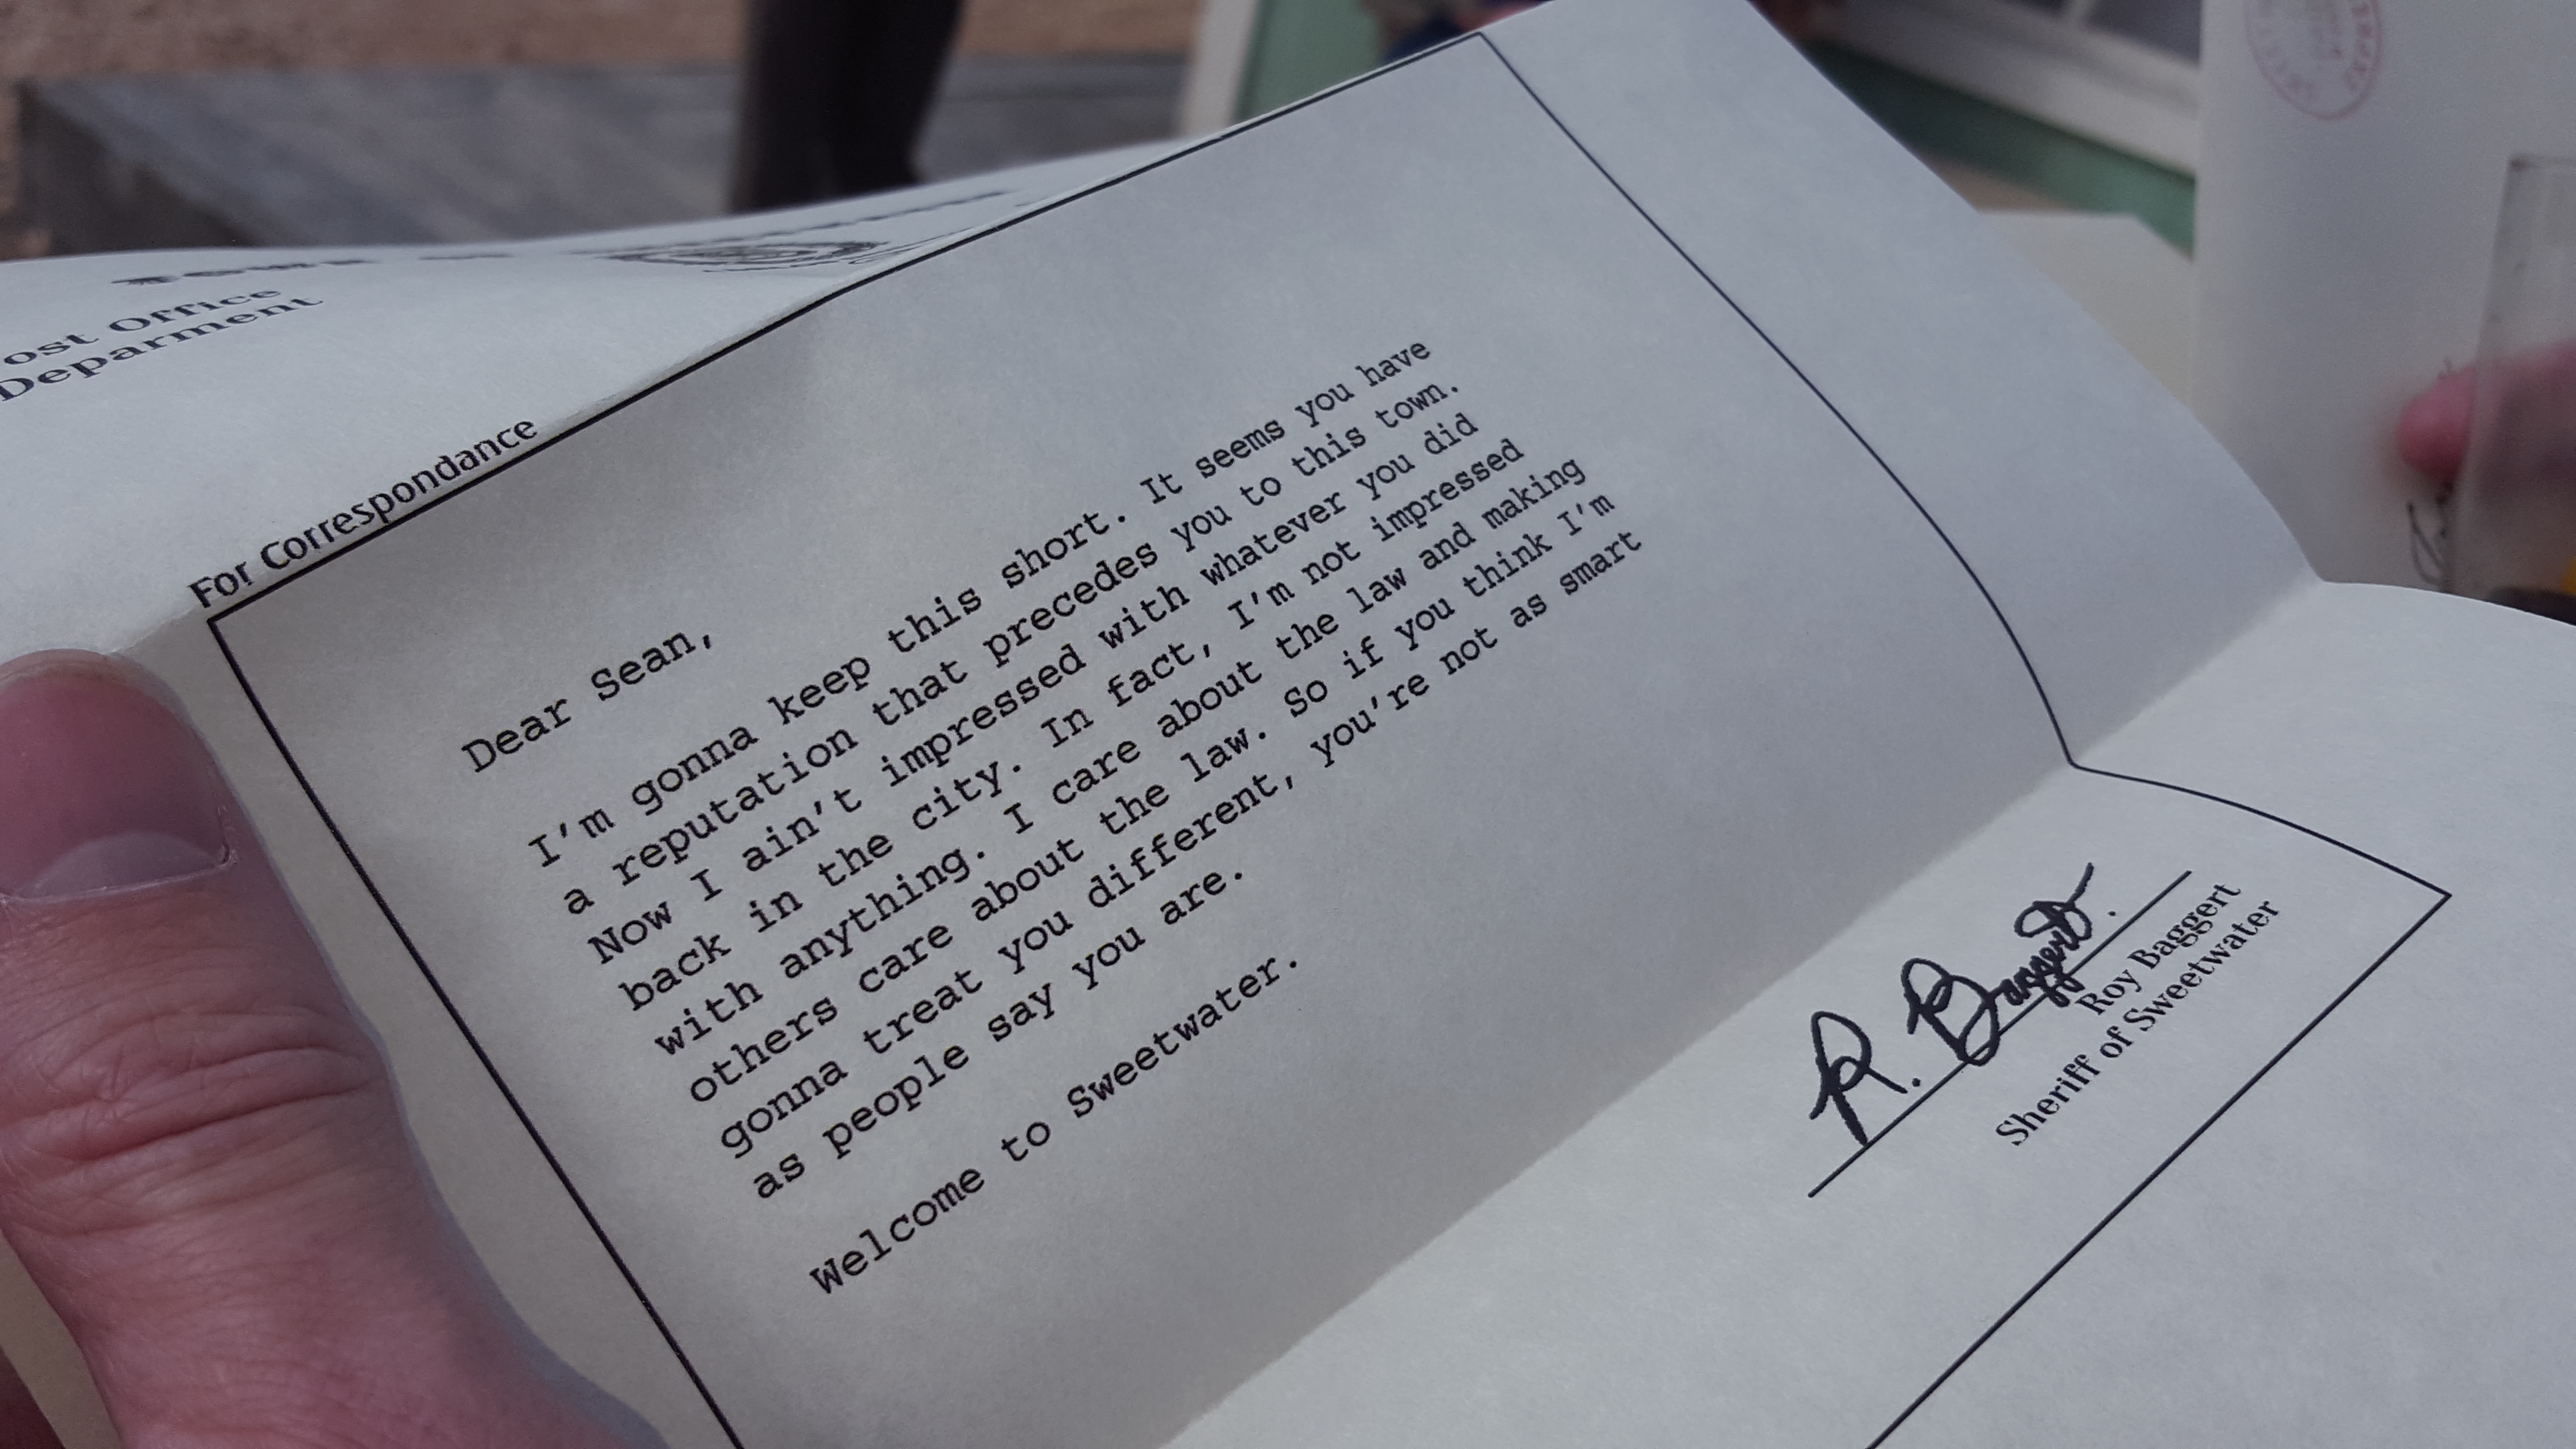 ost Office
Deparment
For Correspondance
Dear Sean,
I'm gonna keep this short. It seems you have
a reputation that precedes you to this town.
Now I ain't impressed with whatever you did
back in the city. In fact, I'm not impressed
with anything. I care about the law and making
others care about the law. So if you think I'm
gonna treat you different, you're not as smart
as people say you are.
Welcome to Sweetwater.
R. Baggert
Roy Baggert
Sheriff of Sweetwater